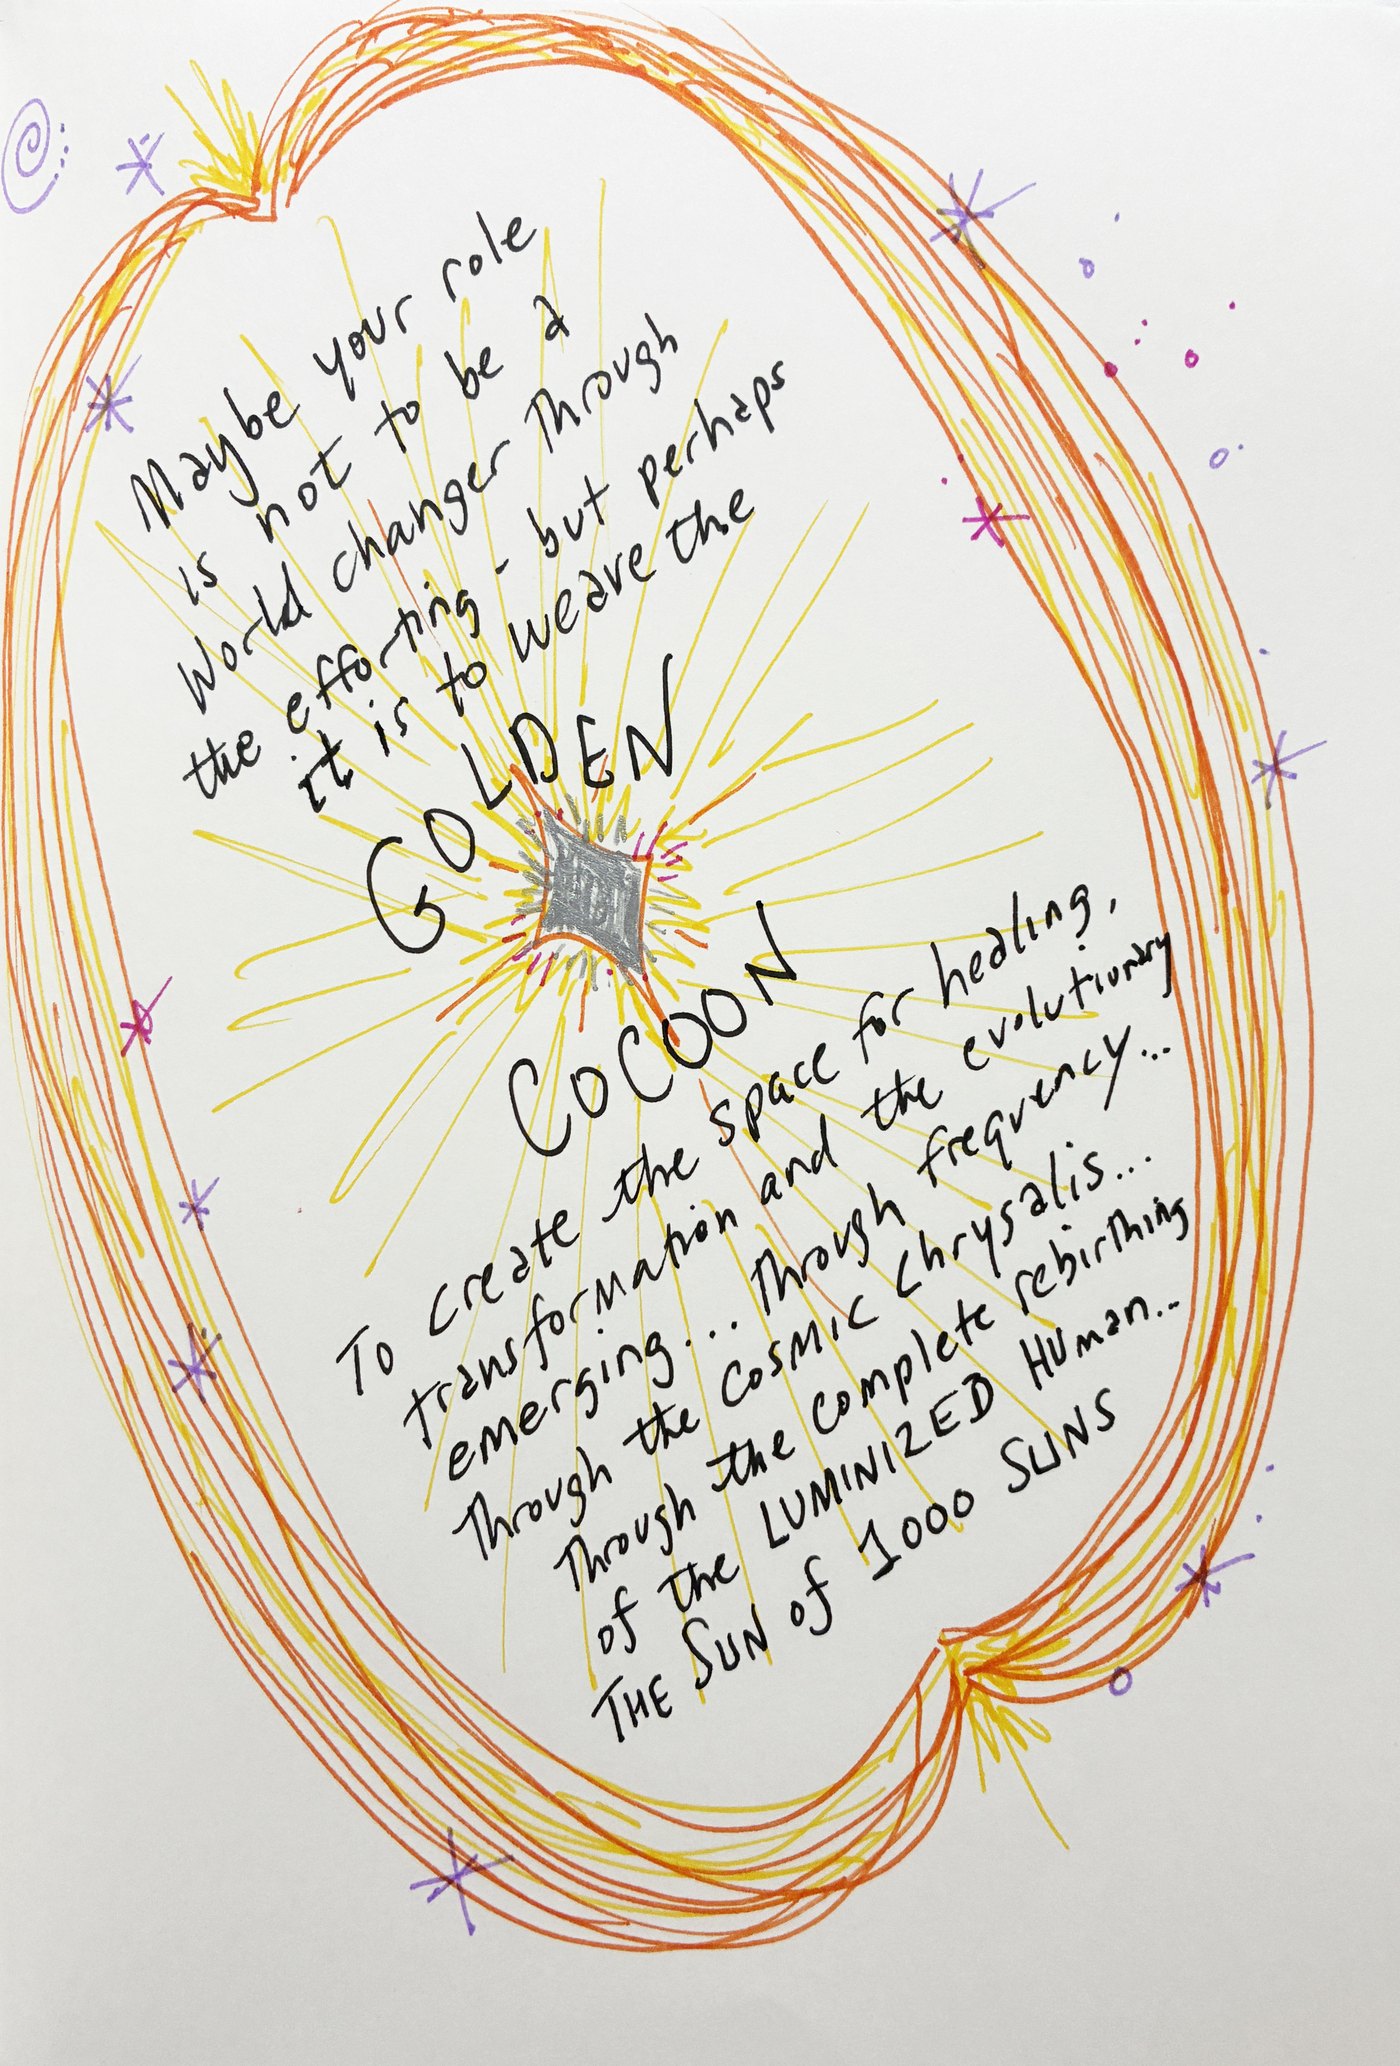 Maybe your role
is not to be a
World changer Through
the efforting - but perhaps
it is to weave the
GOLDEN
COCOON
To create the space for healing,
transformation and the evolutionary
emerging... Through frequency...
Through the Cosmic Chrysalis...
Through the complete rebirthing
of the LUMINIZED HUman...
THE SUN of 1000 SUNS